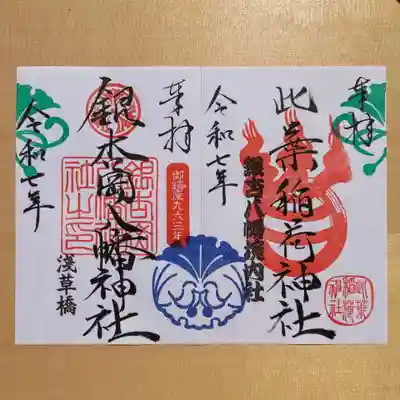 奉拝
此葉稲荷神社
銀杏岡八幡境内社
令和七年
此葉
稲荷
神社
奉拝
御鎮座九六三年
銀杏岡八幡神社
淺草橋
令和七年